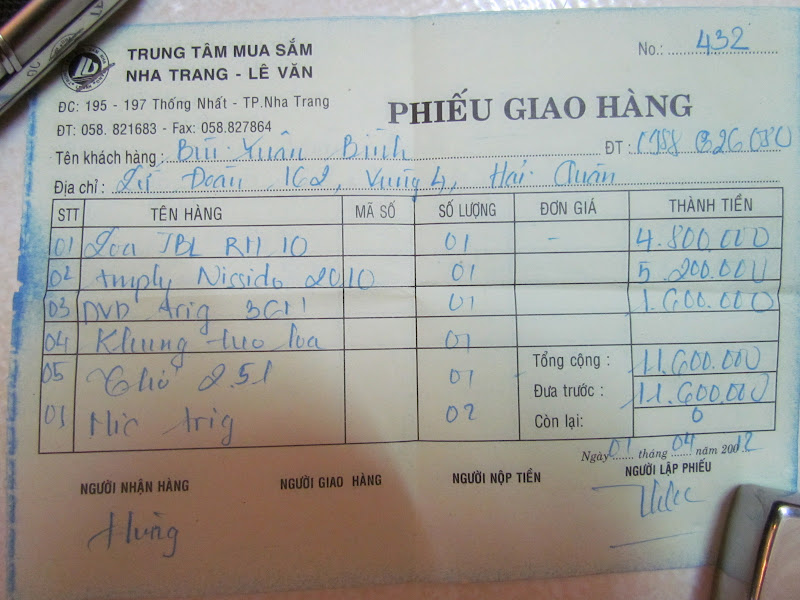 TRUNG TÂM MUA SẮM
NHA TRANG - LÊ VĂN
ĐC: 195 - 197 Thống Nhất - TP.Nha Trang
ĐT: 058. 821683 - Fax: 058.827864
No.: 432
PHIẾU GIAO HÀNG
Tên khách hàng : Bùi Xuân Bình ĐT :
Địa chỉ : Lữ Đoàn 162, Vùng 4, Hải Quân
STT TÊN HÀNG MÃ SỐ SỐ LƯỢNG ĐƠN GIÁ THÀNH TIỀN
01 Loa JBL RM 10 01 - 4.800.000
02 Amply Nissido 2010 01 5.200.000
03 DVD Arig 01 1.600.000
04 Khung treo loa 01
05 251 01 Tổng cộng : 11.600.000
Đưa trước : 11.600.000
Mic Arig 02 Còn lại: 0
Ngày 01 tháng 04 năm 2012
NGƯỜI NHẬN HÀNG NGƯỜI GIAO HÀNG NGƯỜI NỘP TIỀN NGƯỜI LẬP PHIẾU
Hùng